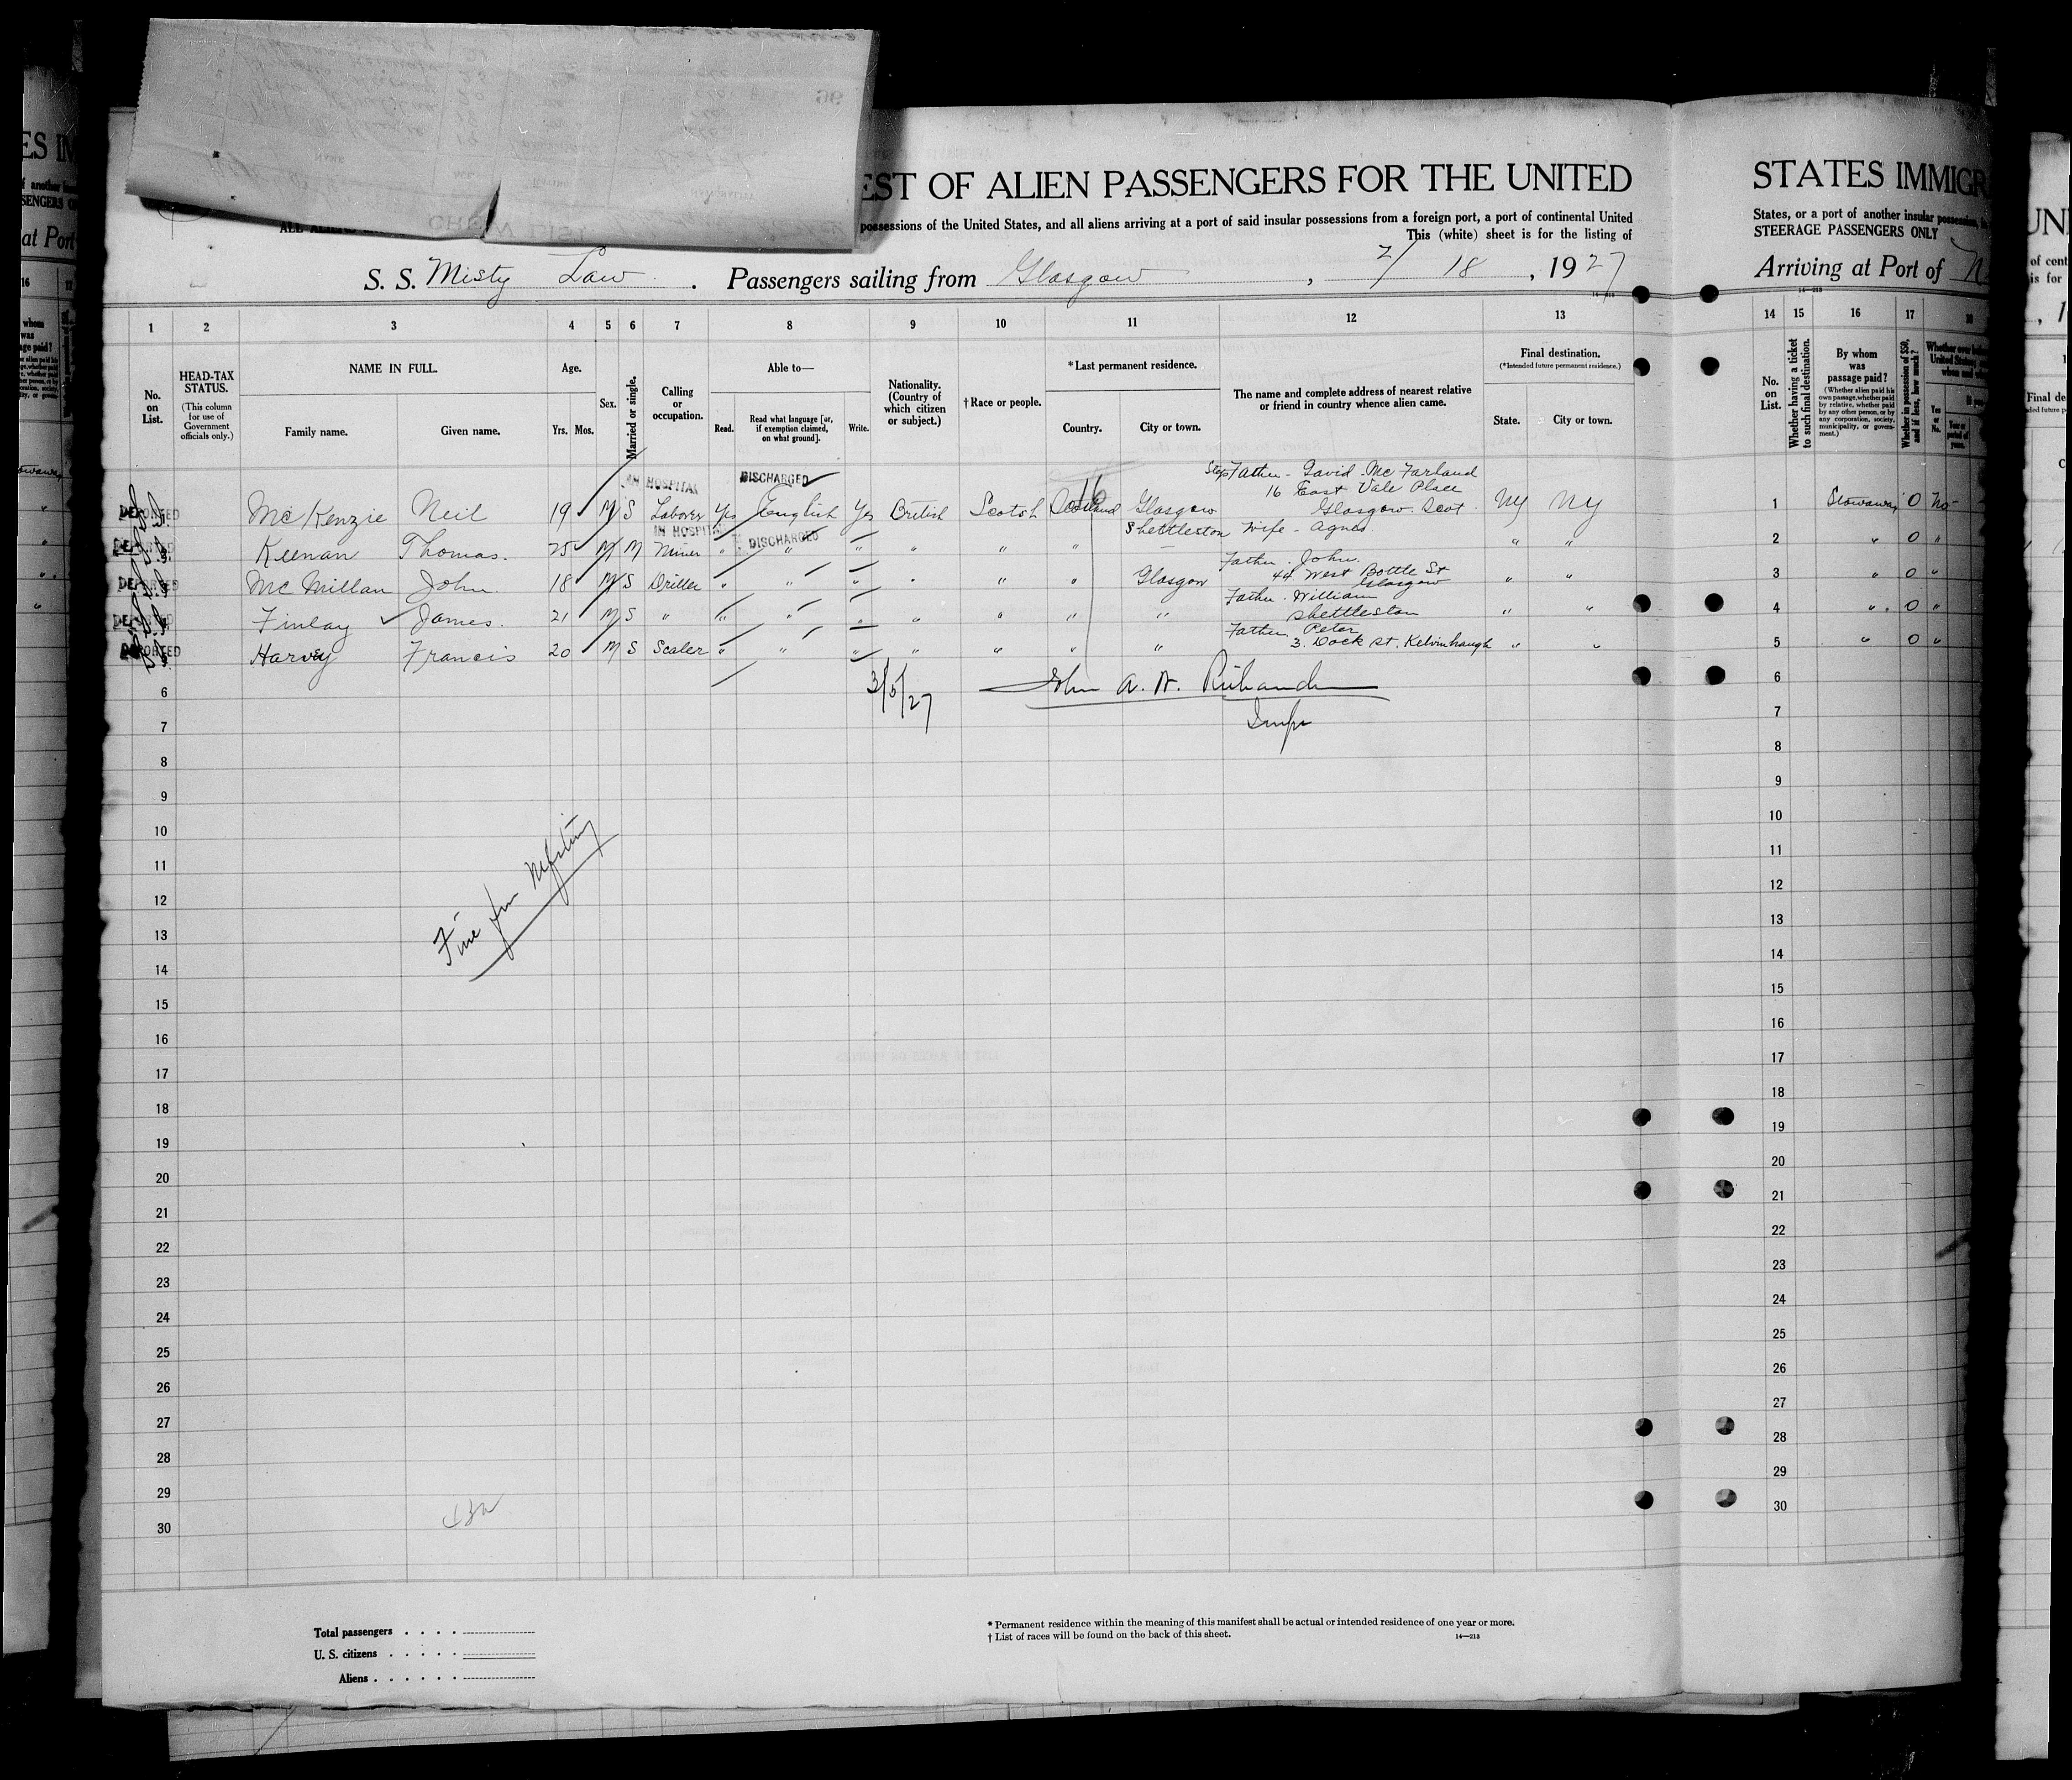 EST OF ALIEN PASSENGERS FOR THE UNITED
possessions of the United States, and all aliens arriving at a port of said insular possessions from a foreign port, a port of continental United
This (white) sheet is for the listing of
S. S. Misty Law. Passengers sailing from Glasgow, 2/ 18, 1927
1 2 3 4 5 6 7 8 9 10 11 12 13
No. on List.
HEAD-TAX STATUS.
(This column for use of Government officials only.)
NAME IN FULL.
Family name. Given name.
Age.
Yrs. Mos.
Sex.
Married or single.
Calling or occupation.
Able to—
Read. Read what language [or, if exemption claimed, on what ground]. Write.
Nationality. (Country of which citizen or subject.)
†Race or people.
*Last permanent residence.
Country. City or town.
The name and complete address of nearest relative or friend in country whence alien came.
Final destination.
(*Intended future permanent residence.)
State. City or town.
IN HOSPITAL DISCHARGED
DEPORTED McKenzie Neil 19 M S Laborer Yes English Yes British Scotch Scotland 16 Glasgow Step Father - David McFarland
16 East Vale Place
Glasgow Scot NY NY
IN HOSPITAL DISCHARGED
DEPORTED Keenan Thomas. 25 M M Miner " " " " " " Shettleston Wife - Agnes " "
DEPORTED McMillan John. 18 M S Driller " " " " " " Glasgow Father. John.
44 West Bottle St
Glasgow " "
DEPORTED Finlay James. 21 M S " " " " " " " " Father. William
Shettleston " "
DEPORTED Harvey Francis 20 M S Scaler " " " " " " " Father Peter
3. Dock St. Kelvinhaugh " "
3/5/27 John A. W. Richards
Insp
6
7
8
9
10
11
12
13
14
15
16
17
18
19
20
21
22
23
24
25
26
27
28
29
30
Total passengers
U. S. citizens
Aliens
* Permanent residence within the meaning of this manifest shall be actual or intended residence of one year or more.
† List of races will be found on the back of this sheet.
14—213
STATES IMMIGR
States, or a port of another insular possession,
STEERAGE PASSENGERS ONLY
Arriving at Port of N
14 15 16 17
No. on List.
Whether having a ticket to such final destination.
By whom was passage paid?
(Whether alien paid his own passage, whether paid by relative, whether paid by any other person, or by any corporation, society, municipality, or government.)
Whether in possession of $50, and if less, how much?
Yes or No.
1 Stowaway 0 No
2 " 0 "
3 " 0 "
4 " 0 "
5 " 0 "
6
7
8
9
10
11
12
13
14
15
16
17
18
19
20
21
22
23
24
25
26
27
28
29
30